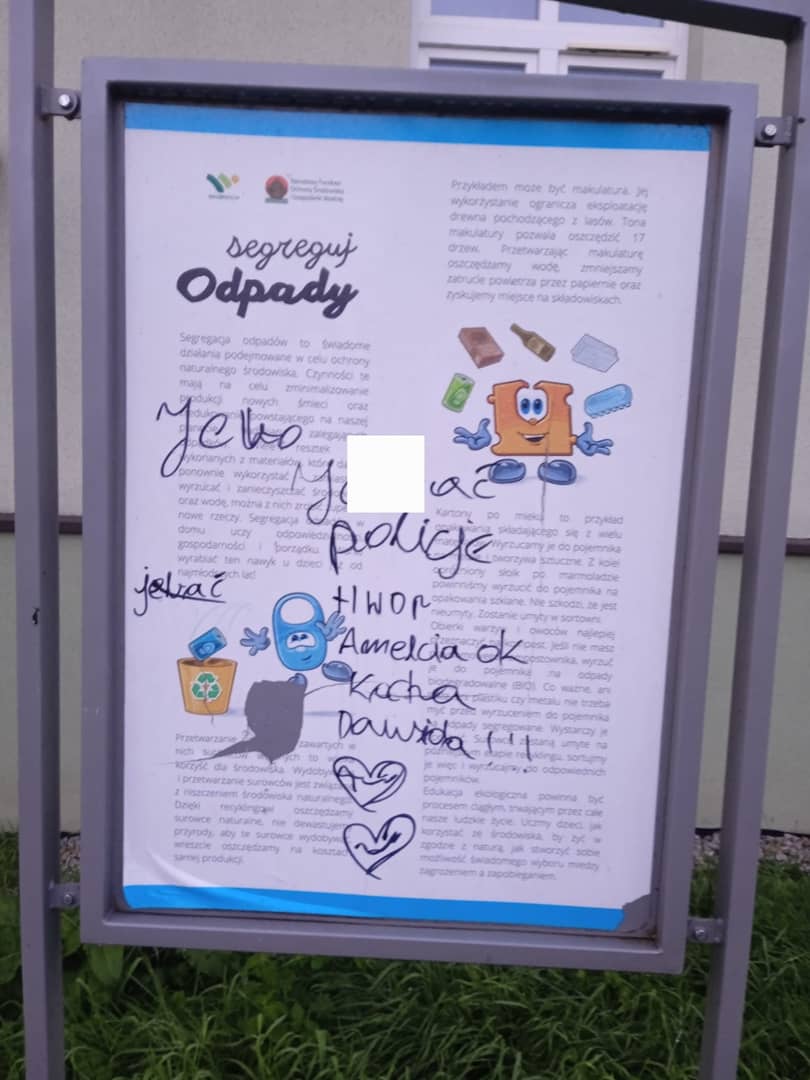 Narodowy Fundusz
Ochrony Środowiska
i Gospodarki Wodnej
segreguj
Odpady
Segregacja odpadów to świadome
działania podejmowane w celu ochrony
naturalnego środowiska. Czynności te
mają na celu zminimalizowanie
produkcji nowych śmieci oraz
powstającego na naszej
zalegających
resztek
wykonanych z materiałów, które
ponownie wykorzystać
wyrzucać i zanieczyszczać
oraz wodę, można z nich
nowe rzeczy. Segregacja w
domu uczy
gospodarności i porządku
wyrabiać ten nawyk u dzieci już od
najmłodszych lat!
Przetwarzanie zawartych w
nich to
korzyść dla środowiska.
i przetwarzanie surowców jest
z niszczeniem środowiska naturalnego.
Dzięki recyklingowi oszczędzamy
surowce naturalne, nie dewastujemy
przyrody, aby te surowce wydobywać,
wreszcie oszczędzamy na kosztach
samej produkcji.
Przykładem może być makulatura. Jej
wykorzystanie ogranicza eksploatację
drewna pochodzącego z lasów. Tona
makulatury pozwala oszczędzić 17
drzew. Przetwarzając makulaturę
oszczędzamy wodę, zmniejszamy
zatrucie powietrza przez papiernie oraz
zyskujemy miejsce na składowiskach.
Kartony po mleku to przykład
opakowania składającego się z wielu
Wyrzucamy je do pojemnika
tworzywa sztuczne. Z kolei
opróżniony słoik po marmoladzie
powinniśmy wyrzucić do pojemnika na
opakowania szklane. Nie szkodzi, że jest
nieumyty. Zostanie umyty w sortowni.
Obierki warzyw i owoców najlepiej
przeznaczyć na kompost. Jeśli nie masz
kompostownika, wyrzuć
je do pojemnika na odpady
biodegradowalne (BIO). Co ważne, ani
plastiku czy metalu nie trzeba
myć przed wyrzuceniem do pojemnika
odpady segregowane. Wystarczy je
Surowce zostaną umyte na
etapie recyklingu, sortujmy
je więc i wyrzucajmy do odpowiednich
pojemników.
Edukacja ekologiczna powinna być
procesem ciągłym, trwającym przez całe
nasze ludzkie życie. Uczmy dzieci, jak
korzystać ze środowiska, by żyć w
zgodzie z naturą, jak stworzyć sobie
możliwość świadomego wyboru między
zagrożeniem a zapobieganiem.
ać
policje
jebać
HWDP
Amelcia ok
Kocha
Dawida !!!